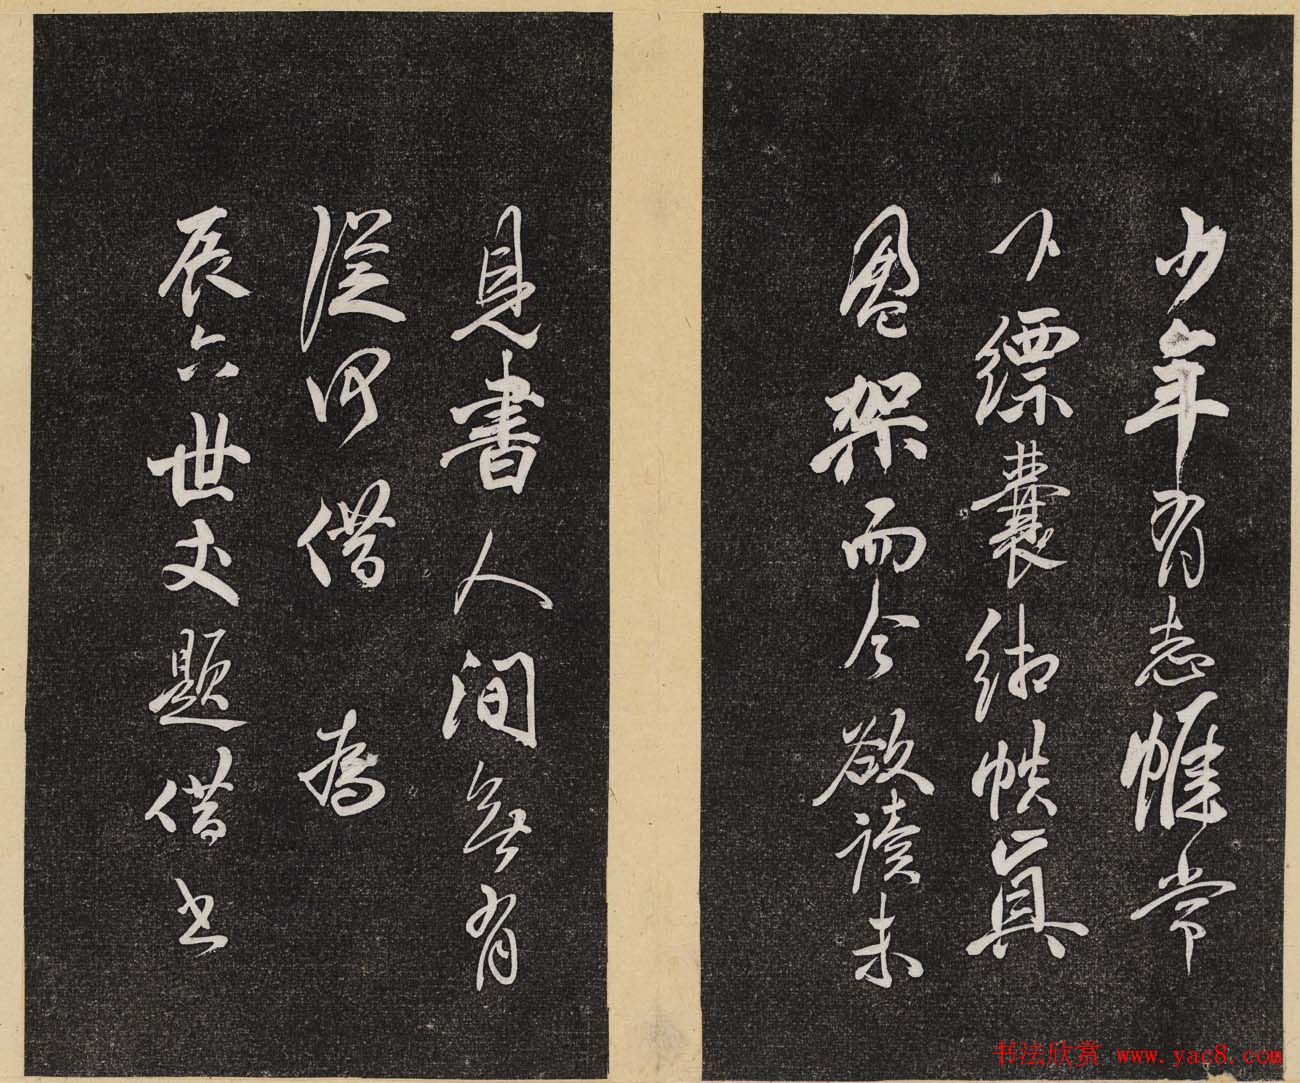 少年有志帷常
下縹囊緗帙真
盈架而今欲讀未
見書人間無有
從何借 為
辰六世丈題借书
书法欣赏 www.yac8.com